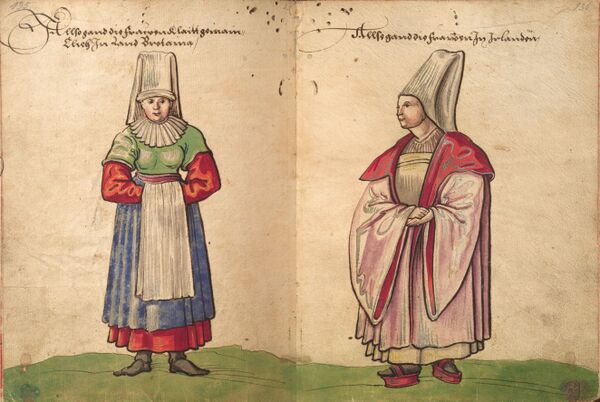 Allso gand die frawen vnd laitt gemain
Clich In Land Brotania
Allso gand die frawen In Irlanden